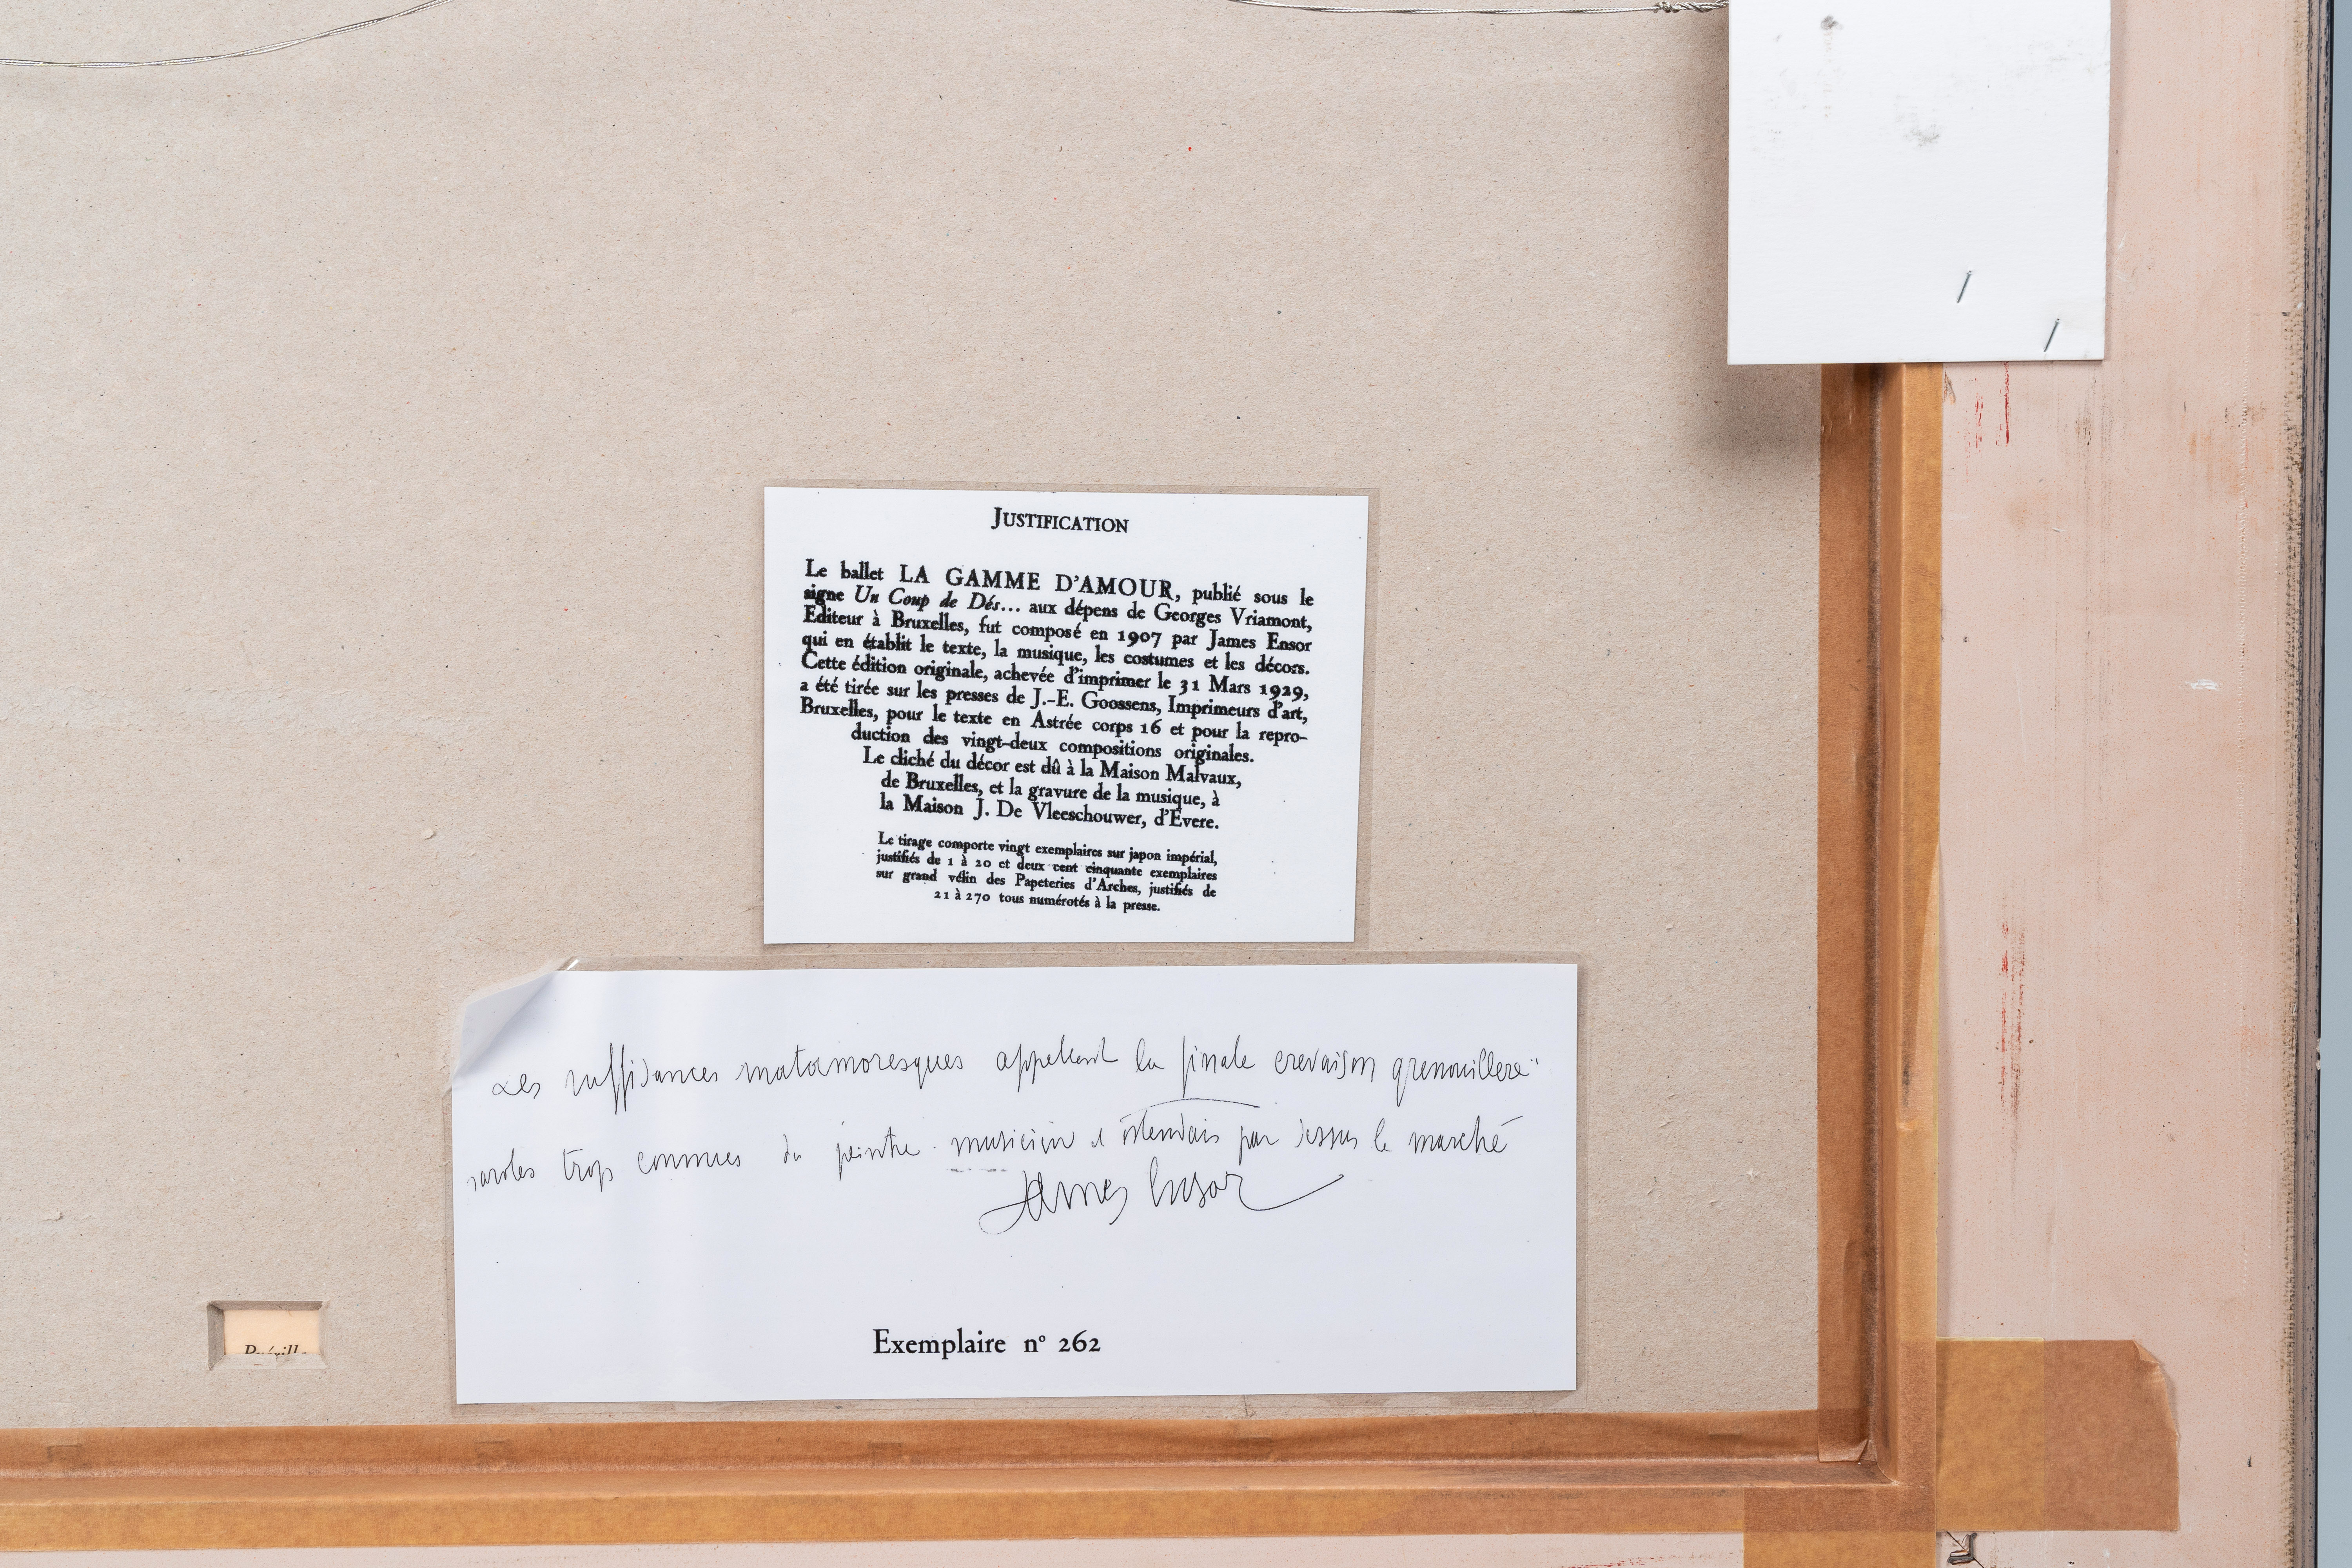 JUSTIFICATION
Le ballet LA GAMME D'AMOUR, publié sous le
signe Un Coup de Dés... aux dépens de Georges Vriamont,
Editeur à Bruxelles, fut composé en 1907 par James Ensor
qui en établit le texte, la musique, les costumes et les décors.
Cette édition originale, achevée d'imprimer le 31 Mars 1929,
a été tirée sur les presses de J.-E. Goossens, Imprimeurs d'art,
Bruxelles, pour le texte en Astrée corps 16 et pour la repro-
duction des vingt-deux compositions originales.
Le cliché du décor est dû à la Maison Malvaux,
de Bruxelles, et la gravure de la musique, à
la Maison J. De Vleeschouwer, d'Evere.
Le tirage comporte vingt exemplaires sur japon impérial,
justifiés de 1 à 20 et deux cent cinquante exemplaires
sur grand vélin des Papeteries d'Arches, justifiés de
21 à 270 tous numérotés à la presse.
Les suffisances matamoresques appellent la finale crevaison grenouillère
paroles trop connues du peintre musicien et ostendais par dessus le marché
James Ensor
Exemplaire nº 262